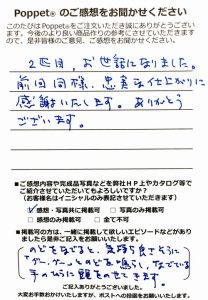 Poppet® のご感想をお聞かせください
このたびはPoppet®をご注文いただき誠にありがとうございます。今後のより良い商品作りの参考にさせていただきますので、是非皆様のご意見、ご感想をお聞かせください。
2匹目、お世話になりました。
前回同様、忠実な仕上がりに
感謝いたします。ありがとう
ございます。
■ご感想内容や完成品写真などを弊社HP上やカタログ等でご紹介させていただいてもよろしいですか?
(お客様名はイニシャルのみ表記させていただきます)
✓感想・写真共に掲載可 □写真のみ掲載可
□感想のみ掲載可 □全て不可
■掲載可の方は、一緒に掲載して欲しいエピソードなどがありましたら是非ご記入をお願いいたします。
のどをなでると、気持ち良さそうに
なでている
手のひらに顔をのせてきます。
ご記入ありがとうございました。
大変お手数おかけいたしますが、ポストへの投函をお願いいたします。